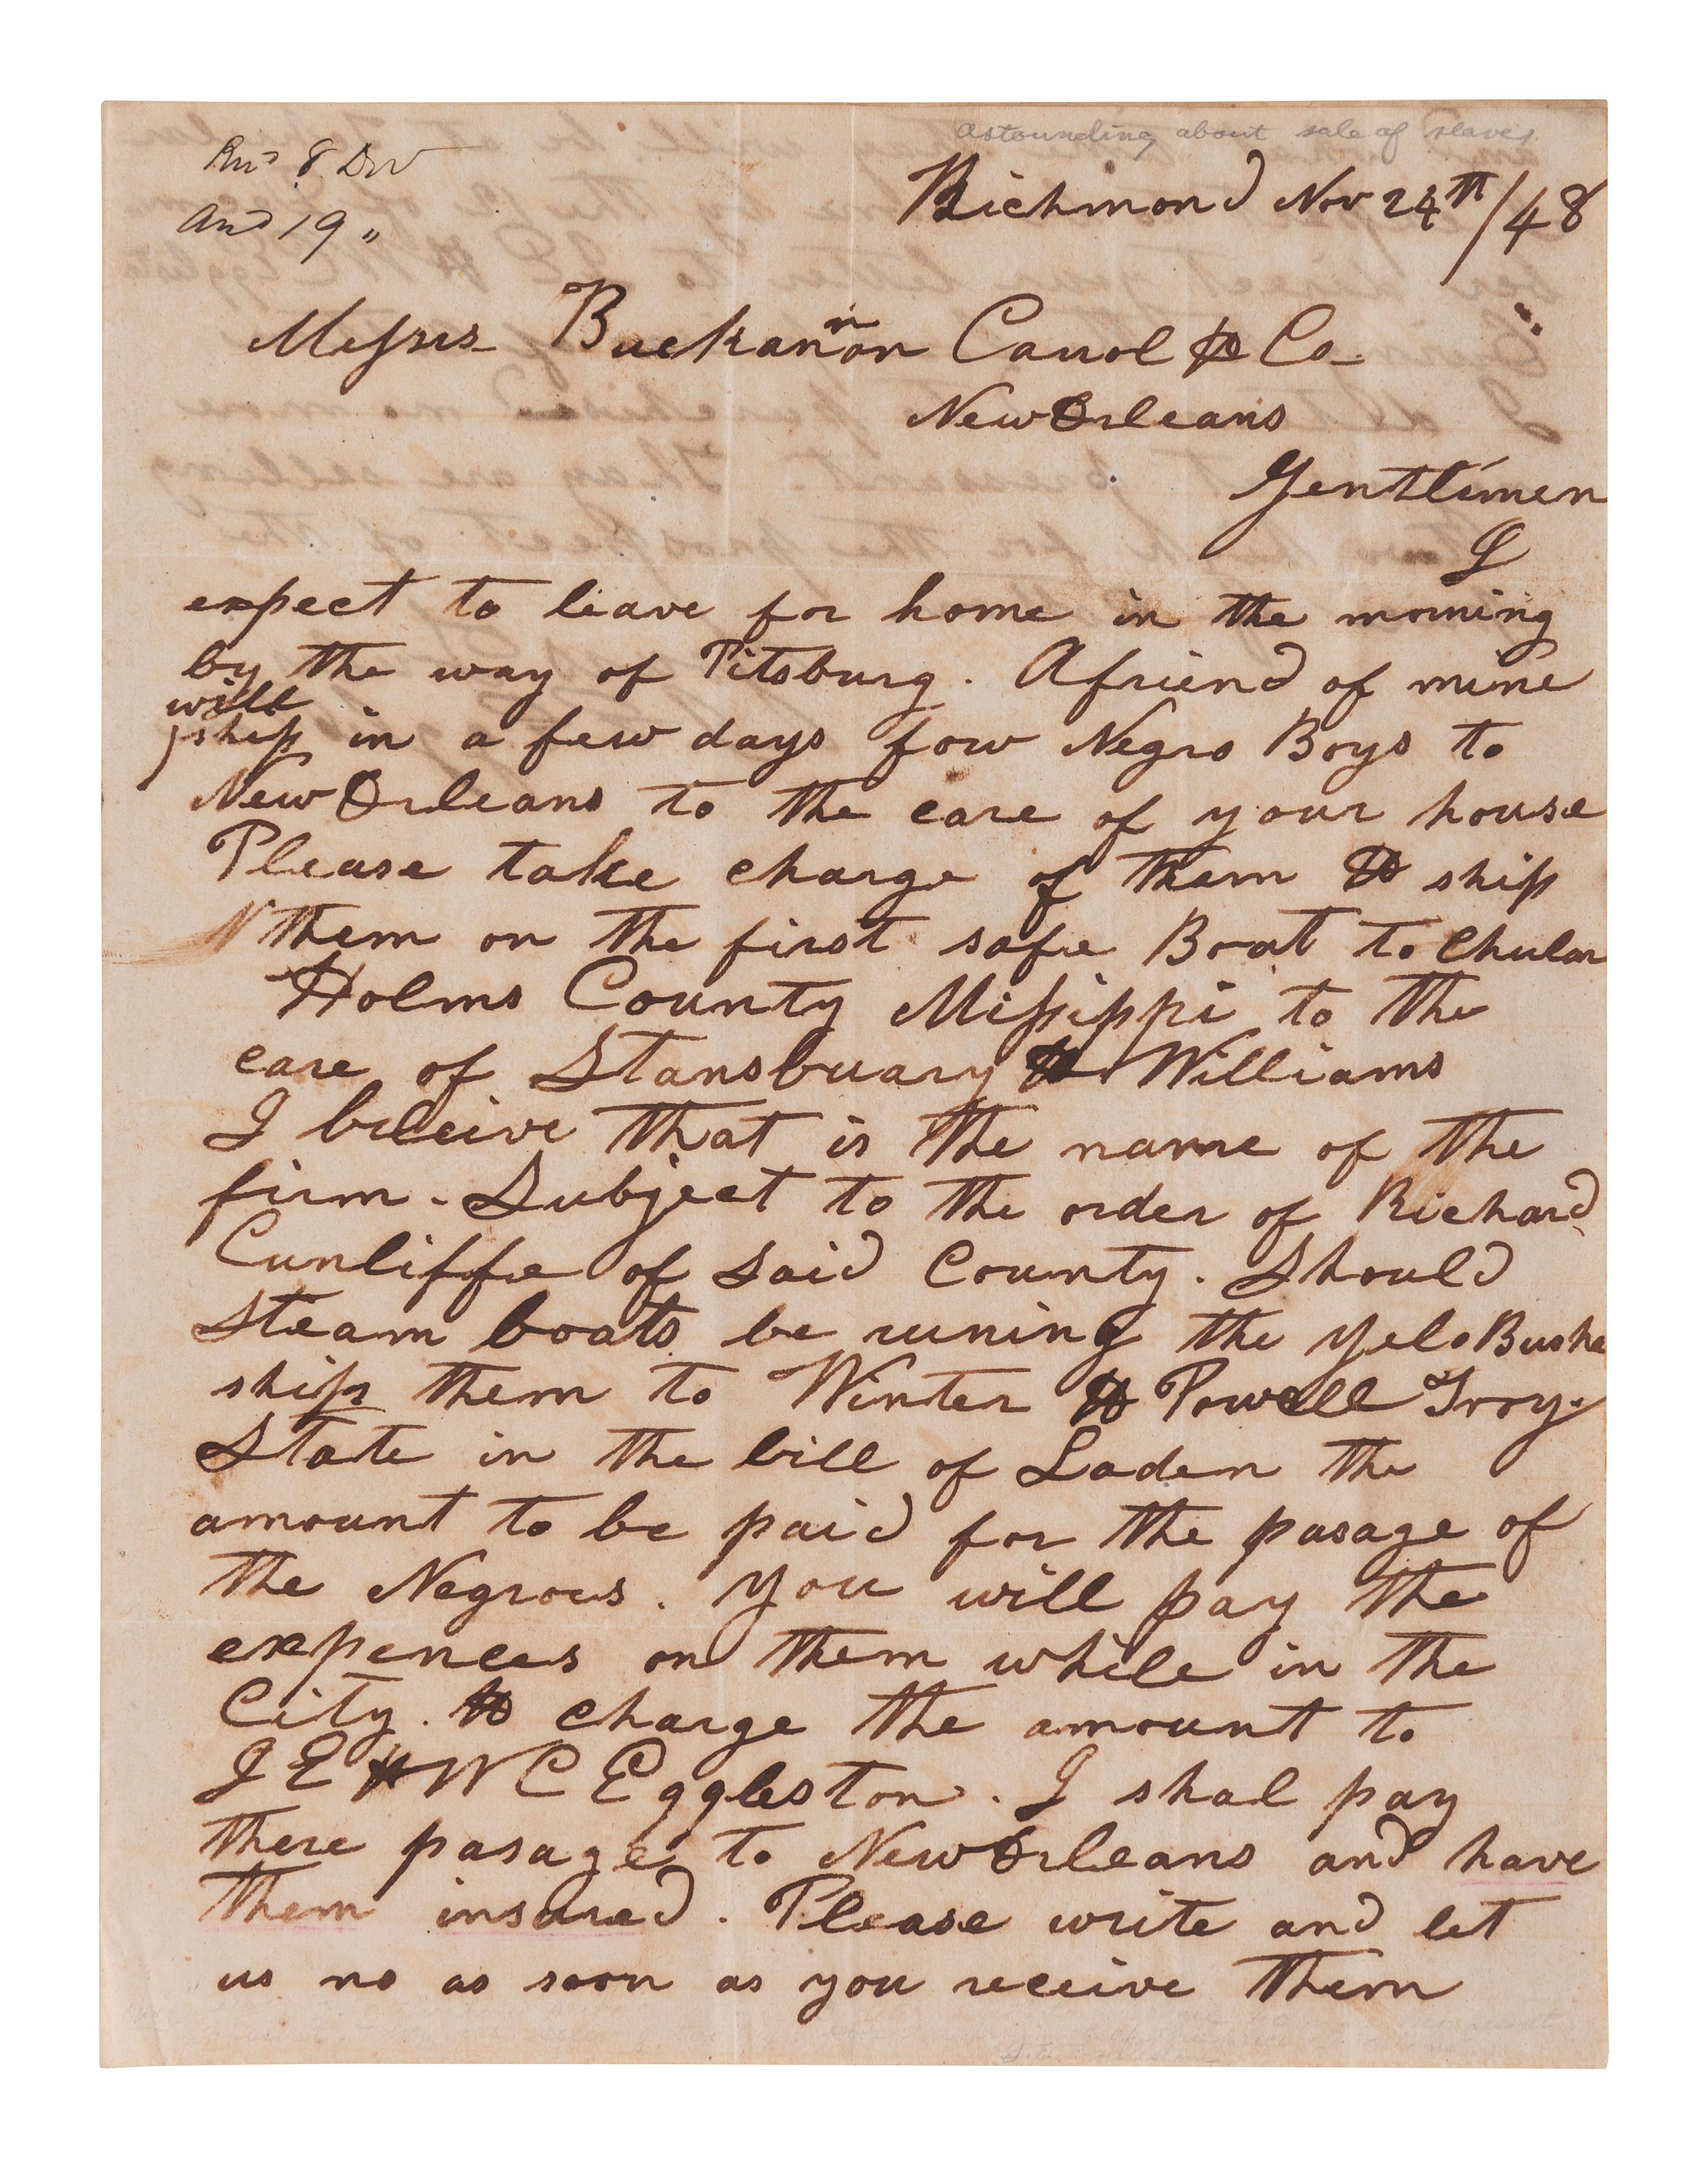 Astounding about sale of slaves
Rec'd 8 Dec
Ans 19 "
Richmond Nov 24th/48
Messrs Buckannon Carrol & Co
New Orleans
Gentlimen
I
expect to leave for home in the morning
by the way of Pitsburg. A friend of mine
will
ship in a few days fow Negro Boys to
New Orleans to the care of your house
Please take charge of them & ship
them on the first safe Boat to Chular
Holms County Missippi to the
care of Stansbuary & Williams
I beleive that is the name of the
firm. Subject to the order of Richard
Cunliffe of said County. Should
Steam boats be runing the YeloBusha
ship them to Winter & Powell Troy.
State in the bill of Laden the
amount to be paid for the pasage of
the Negroes. You will pay the
expences on them while in the
City. & charge the amount to
J E & W C Eggleston. I shal pay
there pasage to New Orleans and have
them insured. Please write and let
us no as soon as you receive them